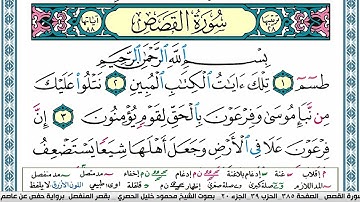 سُورَةُ القَصَصِ
بِسْمِ اللَّهِ الرَّحْمَٰنِ الرَّحِيمِ
طسٓمٓ ١ تِلْكَ ءَايَٰتُ ٱلْكِتَٰبِ ٱلْمُبِينِ ٢ نَتْلُوا۟ عَلَيْكَ
مِن نَّبَإِ مُوسَىٰ وَفِرْعَوْنَ بِٱلْحَقِّ لِقَوْمٍ يُؤْمِنُونَ ٣ إِنَّ
فِرْعَوْنَ عَلَا فِى ٱلْأَرْضِ وَجَعَلَ أَهْلَهَا شِيَعًا يَسْتَضْعِفُ
سورة القصص الصفحة ٣٨٥ الحزب ٣٩ الجزء ٢٠ بصوت الشيخ محمود خليل الحصري بقصر المنفصل برواية حفص عن عاصم